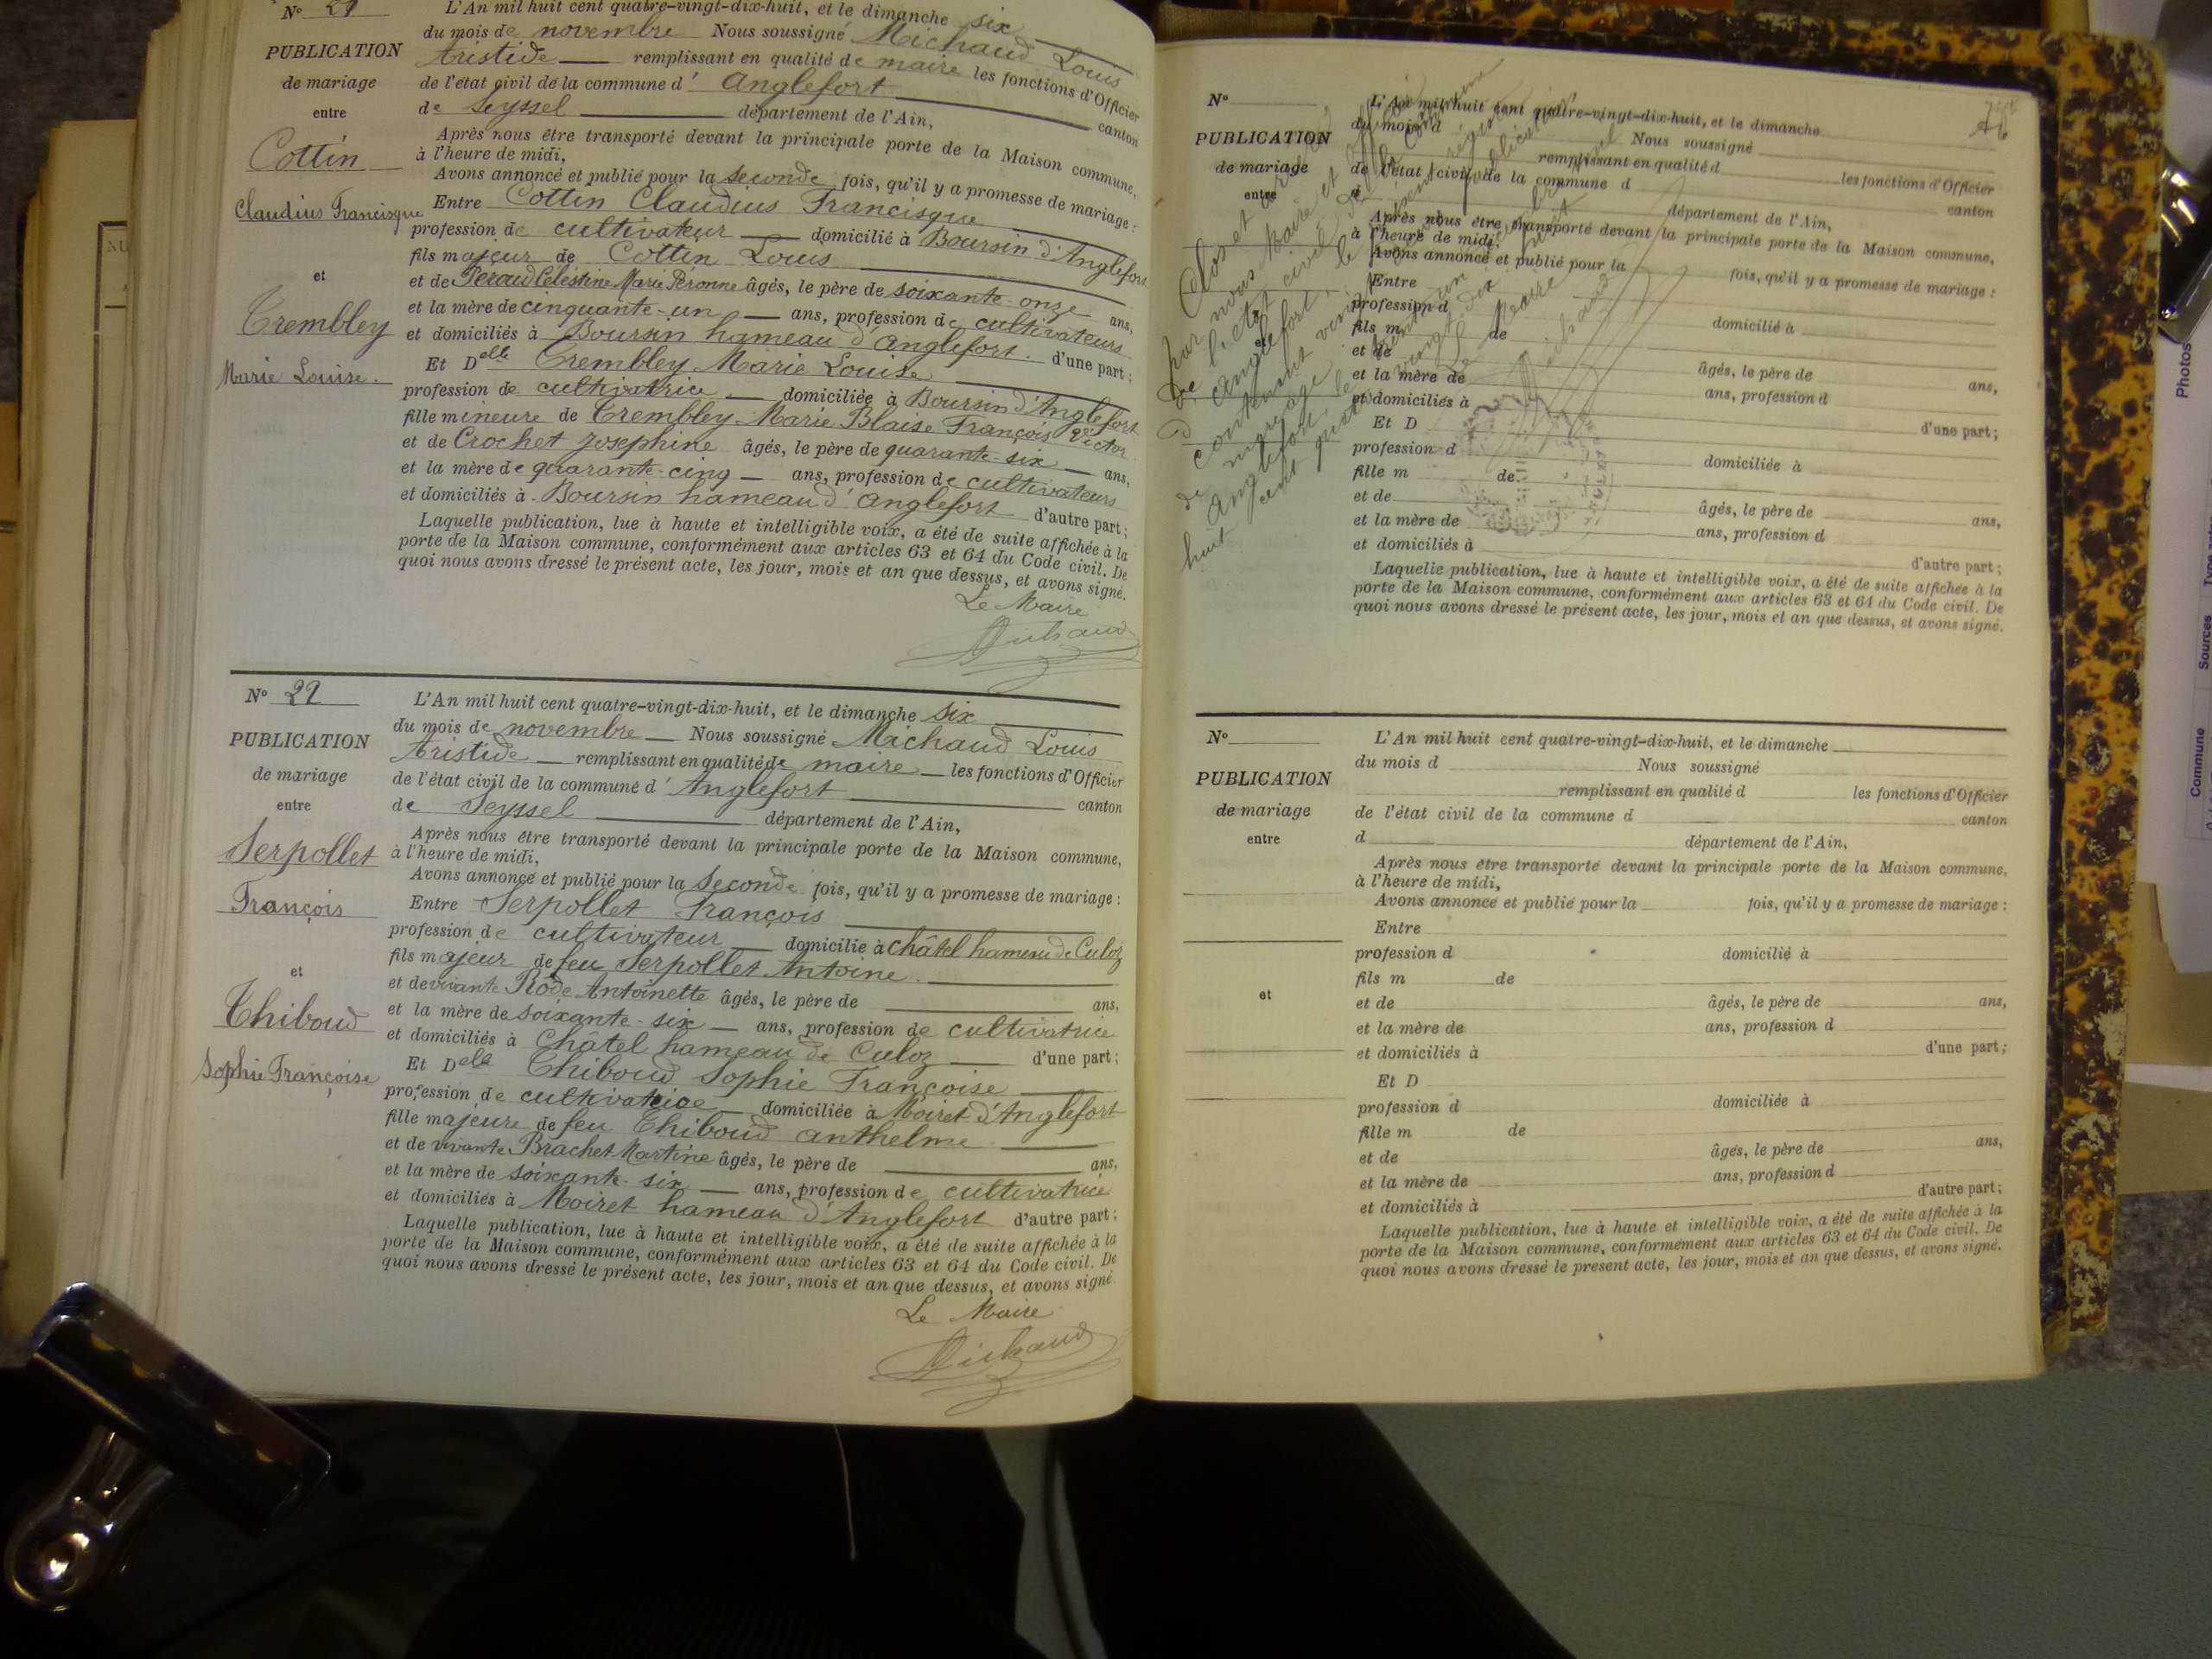 N° 21
L'An mil huit cent quatre-vingt-dix-huit, et le dimanche six
du mois de novembre Nous soussigné Michaud Louis
PUBLICATION
Aristide remplissant en qualité de maire les fonctions d'Officier
de mariage
de l'état civil de la commune d' Anglefort
canton
entre
de Seyssel département de l'Ain,
Après nous être transporté devant la principale porte de la Maison commune,
Cottin
à l'heure de midi,
Avons annoncé et publié pour la seconde fois, qu'il y a promesse de mariage :
Claudius Francisque
Entre Cottin Claudius Francisque
profession de cultivateur domicilié à Boursin d'Anglefort
fils majeur de Cottin Louis
et
et de Peraud Célestine Marie Péronne âgés, le père de soixante-onze ans,
et la mère de cinquante-un ans, profession de cultivateurs
Trembley
et domiciliés à Boursin hameau d'Anglefort. d'une part ;
Et Delle Trembley Marie Louise
Marie Louise.
profession de cultivatrice domiciliée à Boursin d'Anglefort
fille mineure de Trembley Marie Blaise François Victor
et de Crochet Josephine âgés, le père de quarante-six ans,
et la mère de quarante-cinq ans, profession de cultivateurs
et domiciliés à Boursin hameau d'Anglefort d'autre part ;
Laquelle publication, lue à haute et intelligible voix, a été de suite affichée à la
porte de la Maison commune, conformément aux articles 63 et 64 du Code civil. De
quoi nous avons dressé le présent acte, les jour, mois et an que dessus, et avons signé.
Le Maire
Michaud
N° 22
L'An mil huit cent quatre-vingt-dix-huit, et le dimanche six
du mois de novembre Nous soussigné Michaud Louis
PUBLICATION
Aristide remplissant en qualité de maire les fonctions d'Officier
de mariage
de l'état civil de la commune d' Anglefort
canton
entre
de Seyssel département de l'Ain,
Après nous être transporté devant la principale porte de la Maison commune,
Serpollet
à l'heure de midi,
Avons annoncé et publié pour la seconde fois, qu'il y a promesse de mariage :
François
Entre Serpollet François
profession de cultivateur domicilié à Châtel hameau de Culoz
fils majeur de feu Serpollet Antoine
et
et de vivante Rode Antoinette âgés, le père de ans,
Thiboud
et la mère de soixante-six ans, profession de cultivatrice
et domiciliés à Châtel hameau de Culoz d'une part ;
Sophie Françoise
Et Delle Thiboud Sophie Françoise
profession de cultivatrice domiciliée à Moiret d'Anglefort
fille majeure de feu Thiboud Anthelme
et de vivante Brachet Martine âgés, le père de ans,
et la mère de soixante-six ans, profession de cultivatrice
et domiciliés à Moiret hameau d'Anglefort d'autre part ;
Laquelle publication, lue à haute et intelligible voix, a été de suite affichée à la
porte de la Maison commune, conformément aux articles 63 et 64 du Code civil. De
quoi nous avons dressé le présent acte, les jour, mois et an que dessus, et avons signé.
Le Maire
Michaud
N°
L'An mil huit cent quatre-vingt-dix-huit, et le dimanche
du mois d Nous soussigné
PUBLICATION
remplissant en qualité d les fonctions d'Officier
de mariage
de l'état civil de la commune d canton
entre
d département de l'Ain,
Après nous être transporté devant la principale porte de la Maison commune,
à l'heure de midi,
Avons annoncé et publié pour la fois, qu'il y a promesse de mariage :
Entre
profession d domicilié à
fils m de
et
et de âgés, le père de ans,
et la mère de ans, profession d
et domiciliés à d'une part ;
Et D
profession d domiciliée à
fille m de
et de âgés, le père de ans,
et la mère de ans, profession d
et domiciliés à d'autre part ;
Laquelle publication, lue à haute et intelligible voix, a été de suite affichée à la
porte de la Maison commune, conformément aux articles 63 et 64 du Code civil. De
quoi nous avons dressé le présent acte, les jour, mois et an que dessus, et avons signé.
Clos et
par nous Maire et
de l'état civil de la commune
d'Anglefort, le présent registre
contenant vingt publications
de mariage
Anglefort, le trente un
huit cent quatre vingt dix huit
Le Maire
Michaud
N°
L'An mil huit cent quatre-vingt-dix-huit, et le dimanche
du mois d Nous soussigné
PUBLICATION
remplissant en qualité d les fonctions d'Officier
de mariage
de l'état civil de la commune d canton
entre
d département de l'Ain,
Après nous être transporté devant la principale porte de la Maison commune,
à l'heure de midi,
Avons annoncé et publié pour la fois, qu'il y a promesse de mariage :
Entre
profession d domicilié à
fils m de
et
et de âgés, le père de ans,
et la mère de ans, profession d
et domiciliés à d'une part ;
Et D
profession d domiciliée à
fille m de
et de âgés, le père de ans,
et la mère de ans, profession d
et domiciliés à d'autre part ;
Laquelle publication, lue à haute et intelligible voix, a été de suite affichée à la
porte de la Maison commune, conformément aux articles 63 et 64 du Code civil. De
quoi nous avons dressé le présent acte, les jour, mois et an que dessus, et avons signé.
Photos
Commune Sources